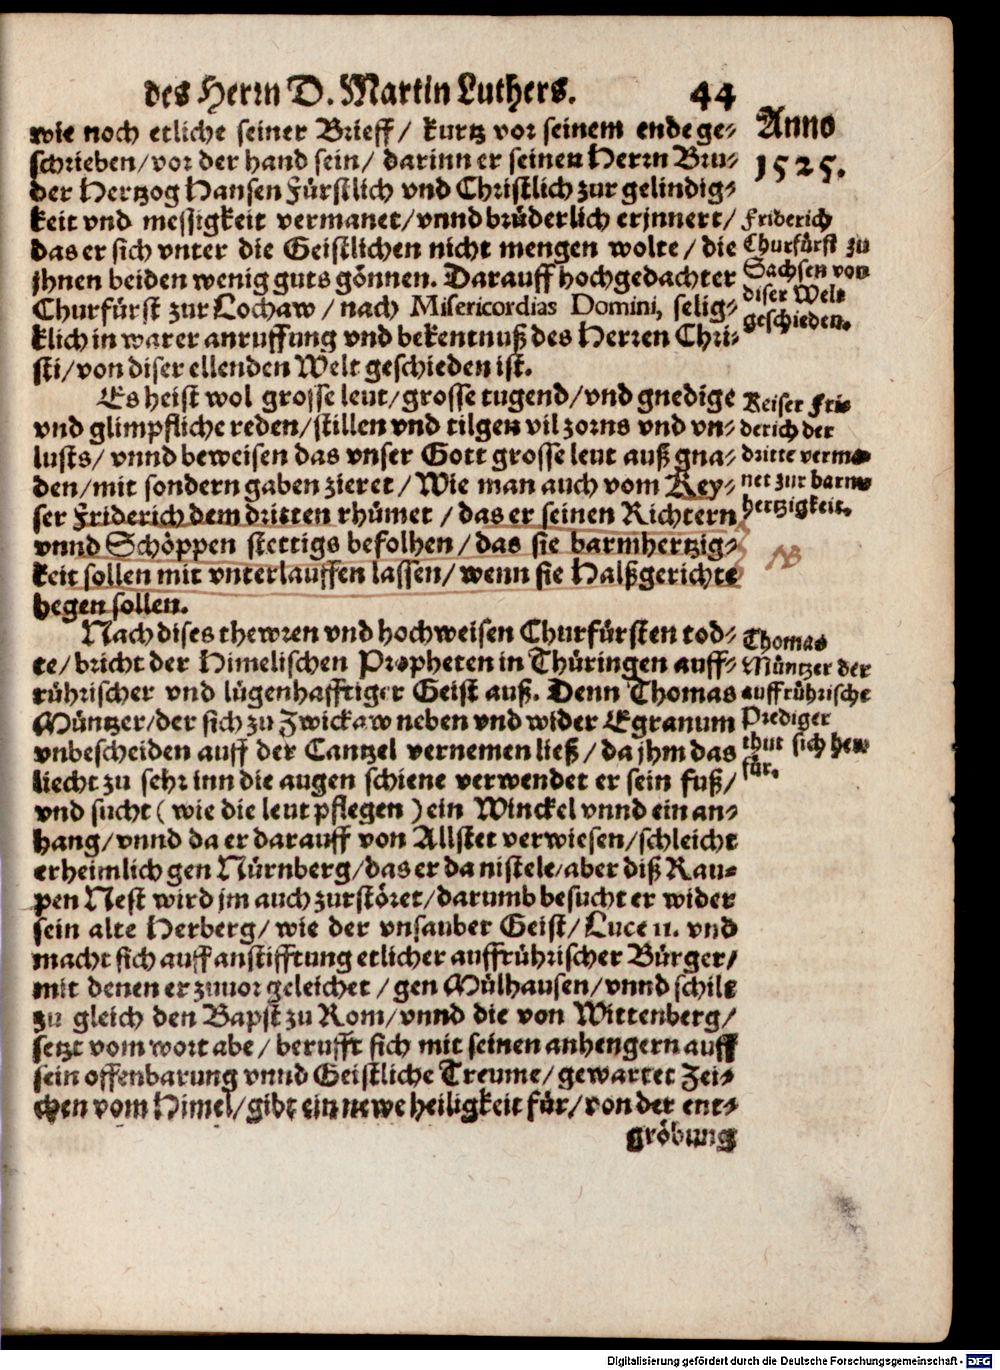 des Herrn D. Martin Luthers. 44
Anno
1525.
wie noch etliche seiner Brieff/ kurtz vor seinem ende ge-
schrieben/vor der hand sein/ darinn er seinen Herrn Bru-
der Hertzog Hansen Fürstlich vnd Christlich zur gelindig-
keit vnd messigkeit vermanet/vnnd brüderlich erjnnert/
das er sich vnter die Geistlichen nicht mengen wolte/ die
jhnen beiden wenig guts gönnen. Darauff hochgedachter
Churfürst zur Lochaw/ nach Misericordias Domini, selig-
klich in warer anruffung vnd bekentnuß des Herren Chri-
sti/von diser ellenden Welt geschieden ist.
Friderich
Churfürst zu
Sachsen von
diser Welt
geschieden.
Es heist wol grosse leut/grosse tugend/vnd gnedige
vnd glimpfliche reden/stillen vnd tilgen vil zorns vnd vn-
lusts/ vnnd beweisen das vnser Gott grosse leut auß gna-
den/mit sondern gaben zieret/ Wie man auch vom Key-
ser Friderich dem dritten rhümet/ das er seinen Richtern
vnnd Schöppen stettigs befolhen/ das sie barmhertzig-
keit sollen mit vnterlauffen lassen/ wenn sie Halßgerichte
hegen sollen.
Keiser Fri-
derich der
dritte verma-
net zur barm-
hertzigkeit.
NB
Nach dises thewren vnd hochweisen Churfürsten tod-
te/ bricht der Himelischen Propheten in Thüringen auff-
rührischer vnd lügenhafftiger Geist auß. Denn Thomas
Müntzer/der sich zu Zwickaw neben vnd wider Egranum
vnbescheiden auff der Cantzel vernemen ließ/ da jhm das
liecht zu sehr inn die augen schiene verwendet er sein fuß/
vnd sucht ( wie die leut pflegen ) ein Winckel vnnd ein an-
hang/ vnnd da er darauff von Allstet verwiesen/schleicht
er heimlich gen Nürnberg/das er da nistele/aber diß Rau-
pen Nest wird jm auch zurstöret/darumb besucht er wider
sein alte Herberg/ wie der vnsauber Geist/ Luce 11. vnd
macht sich auff anstifftung etlicher auffrührischer Bürger/
mit denen er zuuor geleichet/ gen Mülhausen/vnnd schilt
zu gleich den Bapst zu Rom/vnnd die von Wittenberg/
setzt vom wort abe/ berufft sich mit seinen anhengern auff
sein offenbarung vnnd Geistliche Treume/ gewartet Zei-
chen vom Himel/ gibt ein newe heiligkeit für/ von der ent-
gröbung
Thomas
Müntzer der
auffrührische
Prediger
thut sich her-
für.
Digitalisierung gefördert durch die Deutsche Forschungsgemeinschaft - DFG